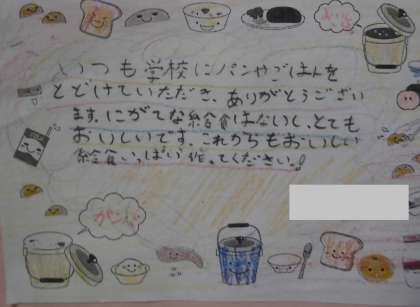 おいしい
いつも学校にパンやごはんを
とどけていただき、ありがとうござい
ます。にがてな給食はないし、とても
おいしいです。これからもおいしい
給食いっぱい作ってください。!